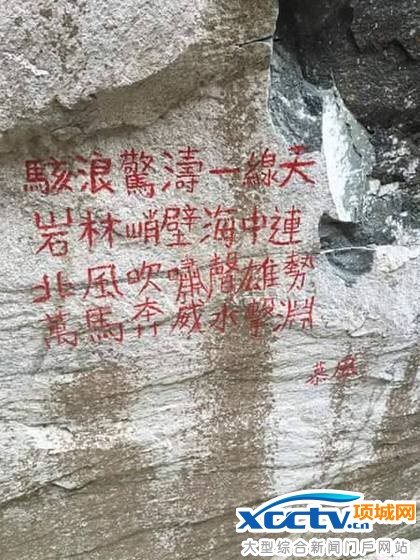 駭浪驚濤一線天
岩林峭壁海中連
北風吹嘯聲雄勢
萬馬奔威水擊淵
慕風
xcctv.cn
项城网
大型综合新闻门戶网站